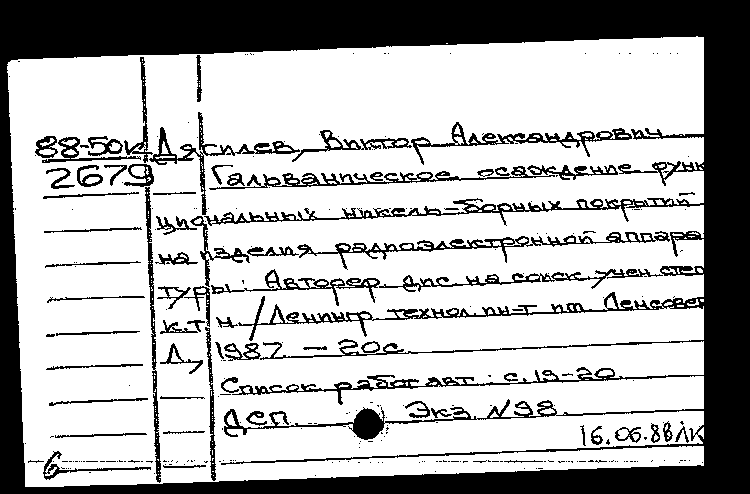 88-50к Дясилев, Виктор Александрович
2679 Гальваническое осаждение функ
циональных никель-борных покрытий
на изделия радиоэлектронной аппара
туры: Автореф. дис. на соиск. учен. степ
к.т.н. / Ленингр. технол. ин-т им. Ленсовет
Л., 1987. - 20с.
Список работ авт.: с. 19-20.
ДСП. Экз. N98.
16.06.88 ЛК
6